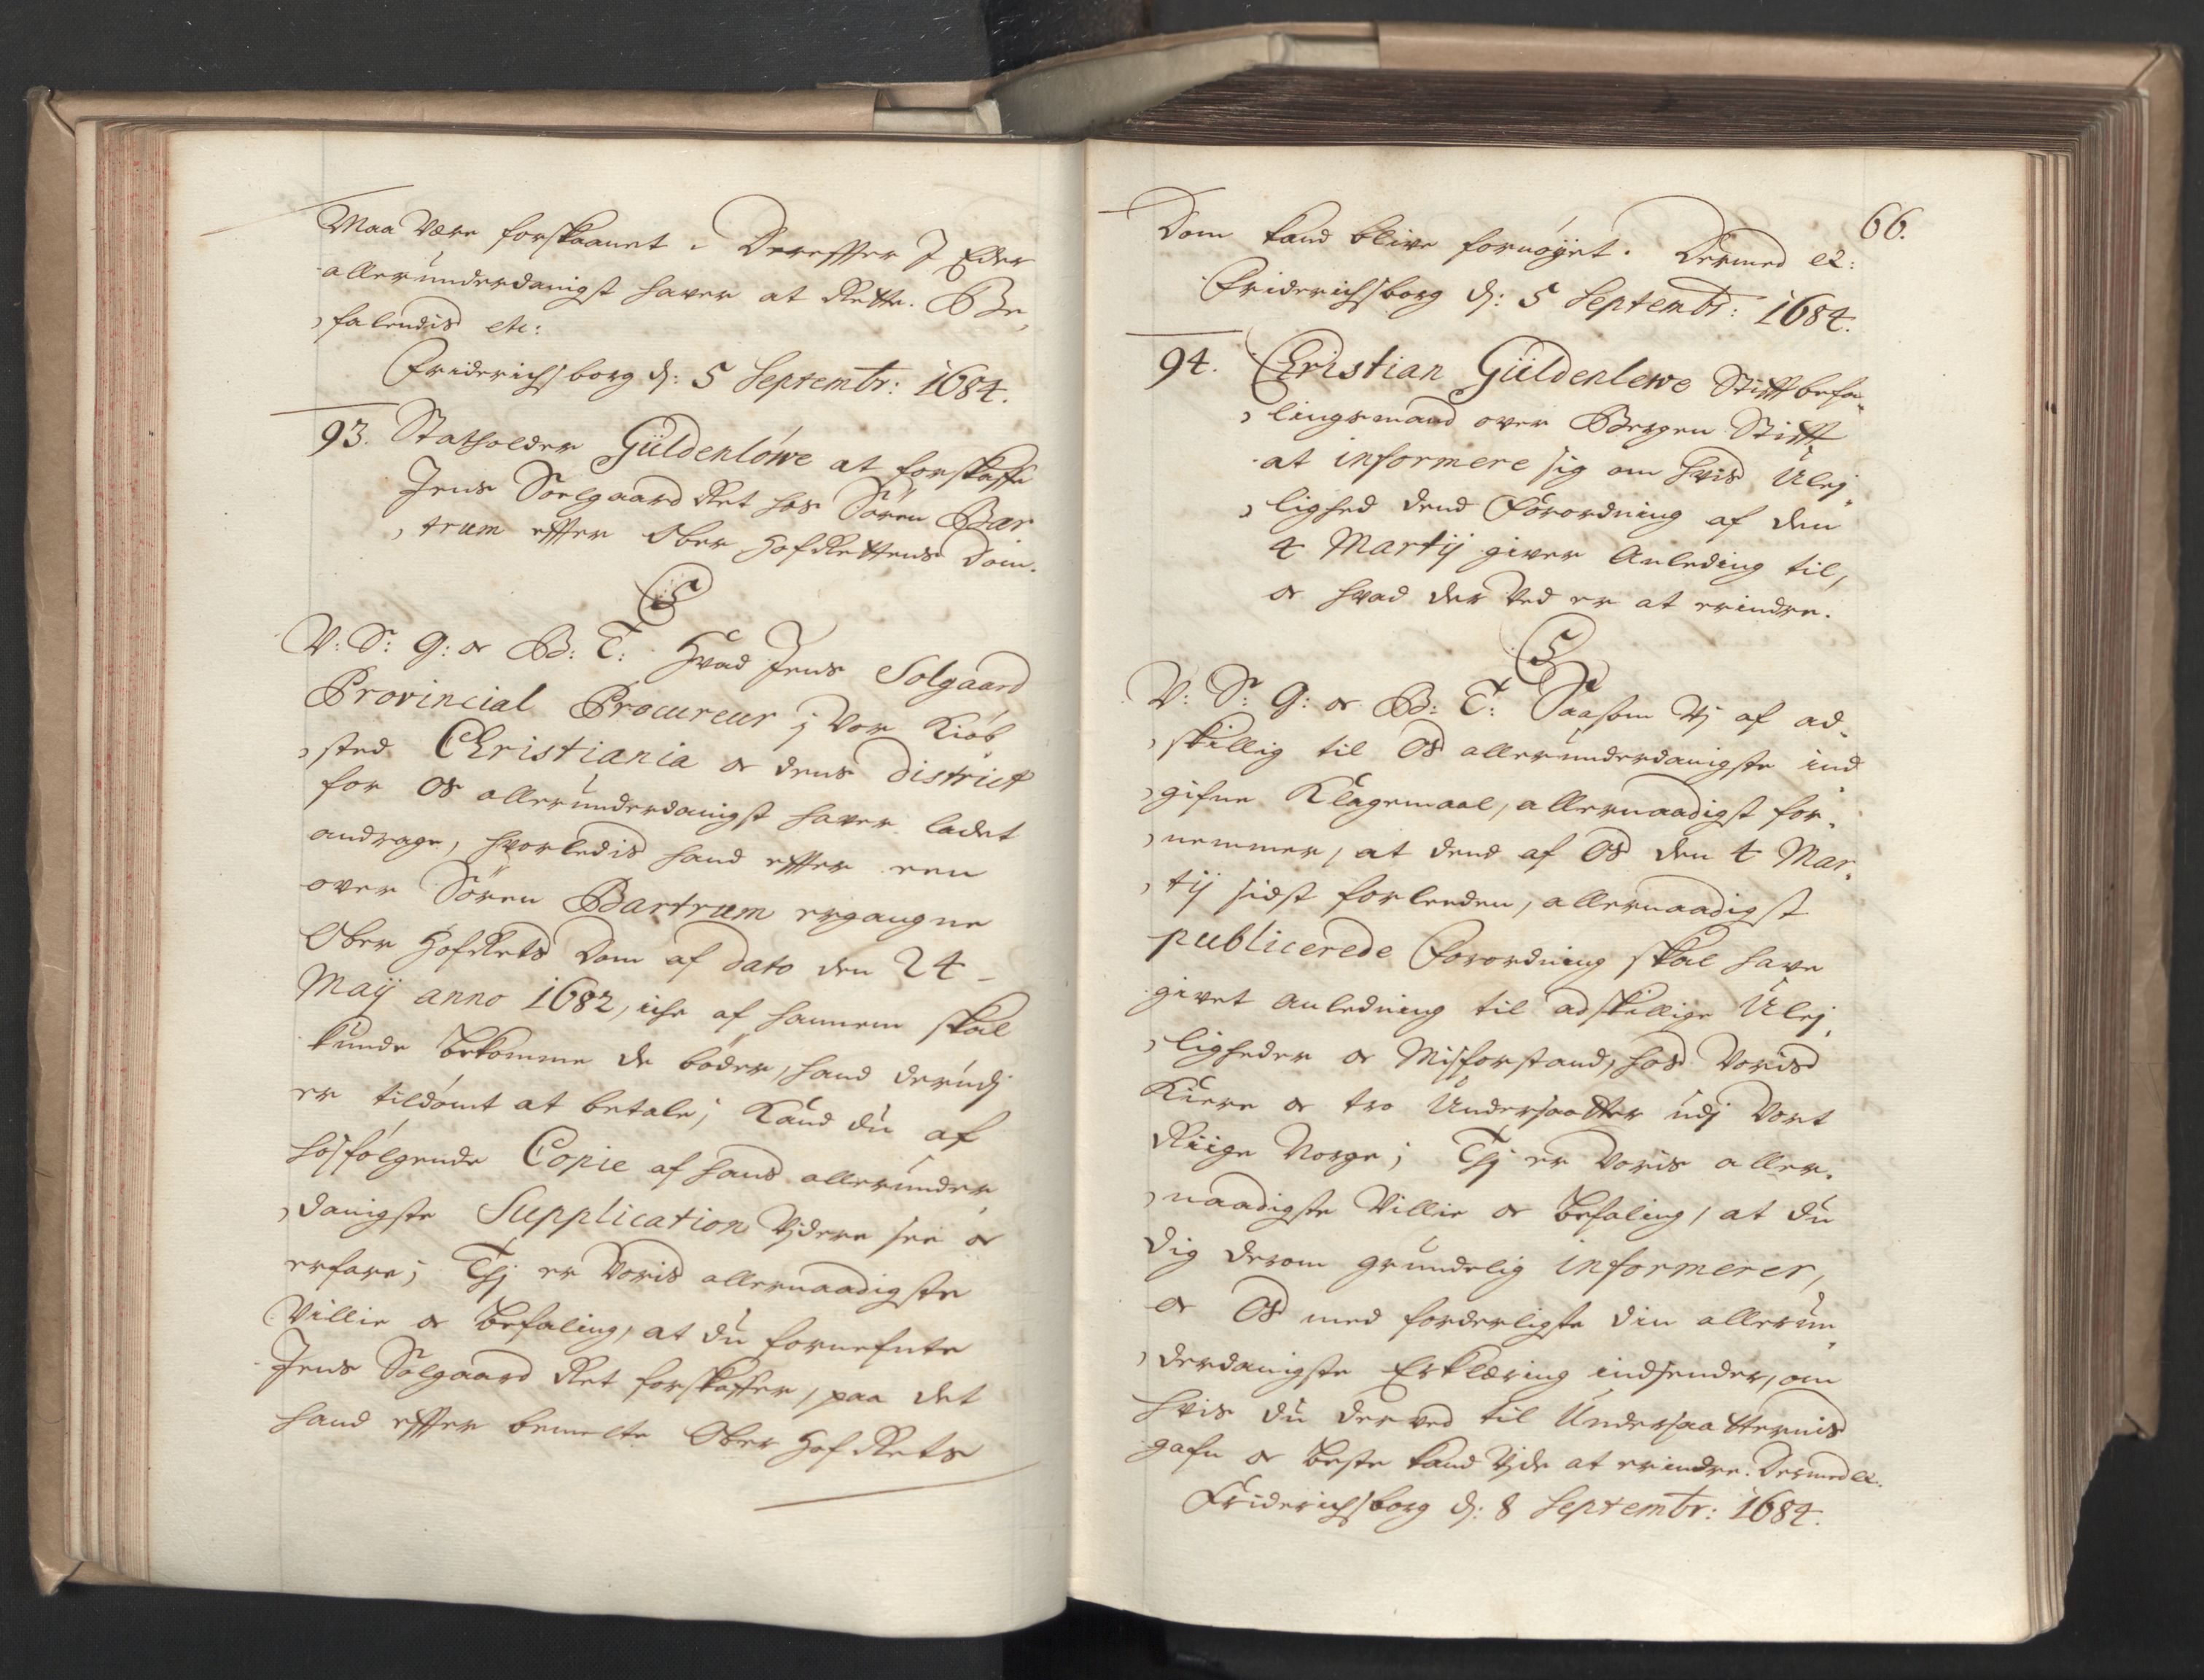 Maa være forskaanet. Dereffter I Eder
allerunderdanigst haver at Rette. Be¬
falendis etc:
Friderichsborg d: 5 Septembr: 1684.
93. Statholder Güldenløwe at forskaffe
Jens Soelgaard Ret hos Søren Bar
trum effter Ober Hof Rettens Dom.
C5
V: S: G: oc B: T: Hvad Jens Solgaard
Provincial Procureur j Vor Kiøb
sted Christiania oc dens District
for Os allerunderdanigst haver ladet
andrage, hvorledis hand effter een
over Søren Bartrum ergangne
Ober HofRets Dom af dato den 24
Maij anno 1682, iche af hannem skal
kunde bekomme de bøder, hand derudj
er tildømt at betale; Kand du af
hosfølgende Copie af hans allerunder
danigste Supplication Vjdere see oc
erfare; Thj er Voris allernaadigste
Villie oc Befaling, at du fornefnte
Jens Solgaard Ret forskaffer, paa det
hand effter bemelte Ober Hof Rets
66.
Dom kand blive fornøyet. Dermed etc:
Friderichsborg d: 5 Septembr: 1684.
94. Christian Güldenlewe Stifftbefa¬
lingsmand over Bergen Stifft
at informere sig om hvis Ulej¬
lighed dend Forordning af den
4 Martij giver Anleding til,
oc hvad der Ved er at erindre.
C5
V: S: G: oc B: T: Saasom Vj af ad¬
skillig til Os allerunderdanigste ind
gifne Klagemaal, allernaadigst for¬
nemmer, at dend af Os den 4 Mar¬
tij sidst forleeden, allernaadigst
publicerede Forordning skal have
givet anledning til adskillige Ulej¬
ligheder oc Misforstand, hos Voris
Kiere oc tro Undersaatter udj Vort
Riige Norge; Thj er Voris aller¬
naadigste Villie oc Befaling, at du
dig derom grundelig informerer,
oc Os med forderligste din allerun
derdanigste Erklæring indsender, om
hvis du derved til Undersaatternis
gafn oc beste kand Vjde at erindre. Dermed etc.
Friderichsborg d: 8 Septembr: 1684.